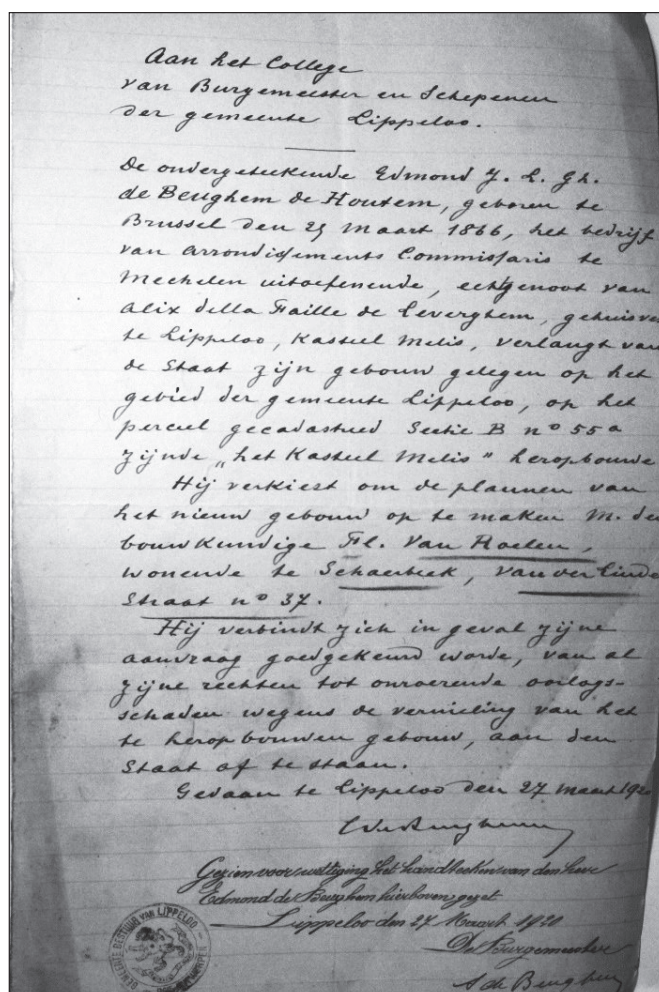 Aan het College
van Burgemeester en Schepenen
der gemeente Lippeloo.
De ondergeteekende Edmond J. L. Gh.
de Beughem de Houtem, geboren te
Brussel den 25 Maart 1866, het bedrijf
van Arrondissements Commissaris te
Mechelen uitoefenende, echtgenoot van
Alix della Faille de Leverghem, gehuisves
te Lippeloo, Kasteel Melis, verlangt van
de Staat zijn gebouw gelegen op het
gebied der gemeente Lippeloo, op het
perceel gecadastreed Sectie B n° 55a
zijnde "het Kasteel Melis" heropbouwd
Hij verkiest om de plannen van
het nieuw gebouw op te maken M. den
bouwkundige Fl. Van Roelen,
wonende te Schaerbeek, Van der Linde
Straat n° 37.
Hij verbindt zich in geval zijne
aanvraag goedgekeurd worde, van al
zijne rechten tot onroerende oorlogs-
schaden wegens de vernieling van het
te heropbouwen gebouw, aan den
Staat af te staan.
Gedaan te Lippeloo den 27 Maart 192
Gezien voor wettiging het handteeken van den heer
Edmond de Beughem hierboven gezet
Lippeloo den 27 Maart 1920
De Burgemeester
A de Beughem
GEMEENTE BESTUUR VAN LIPPELOO